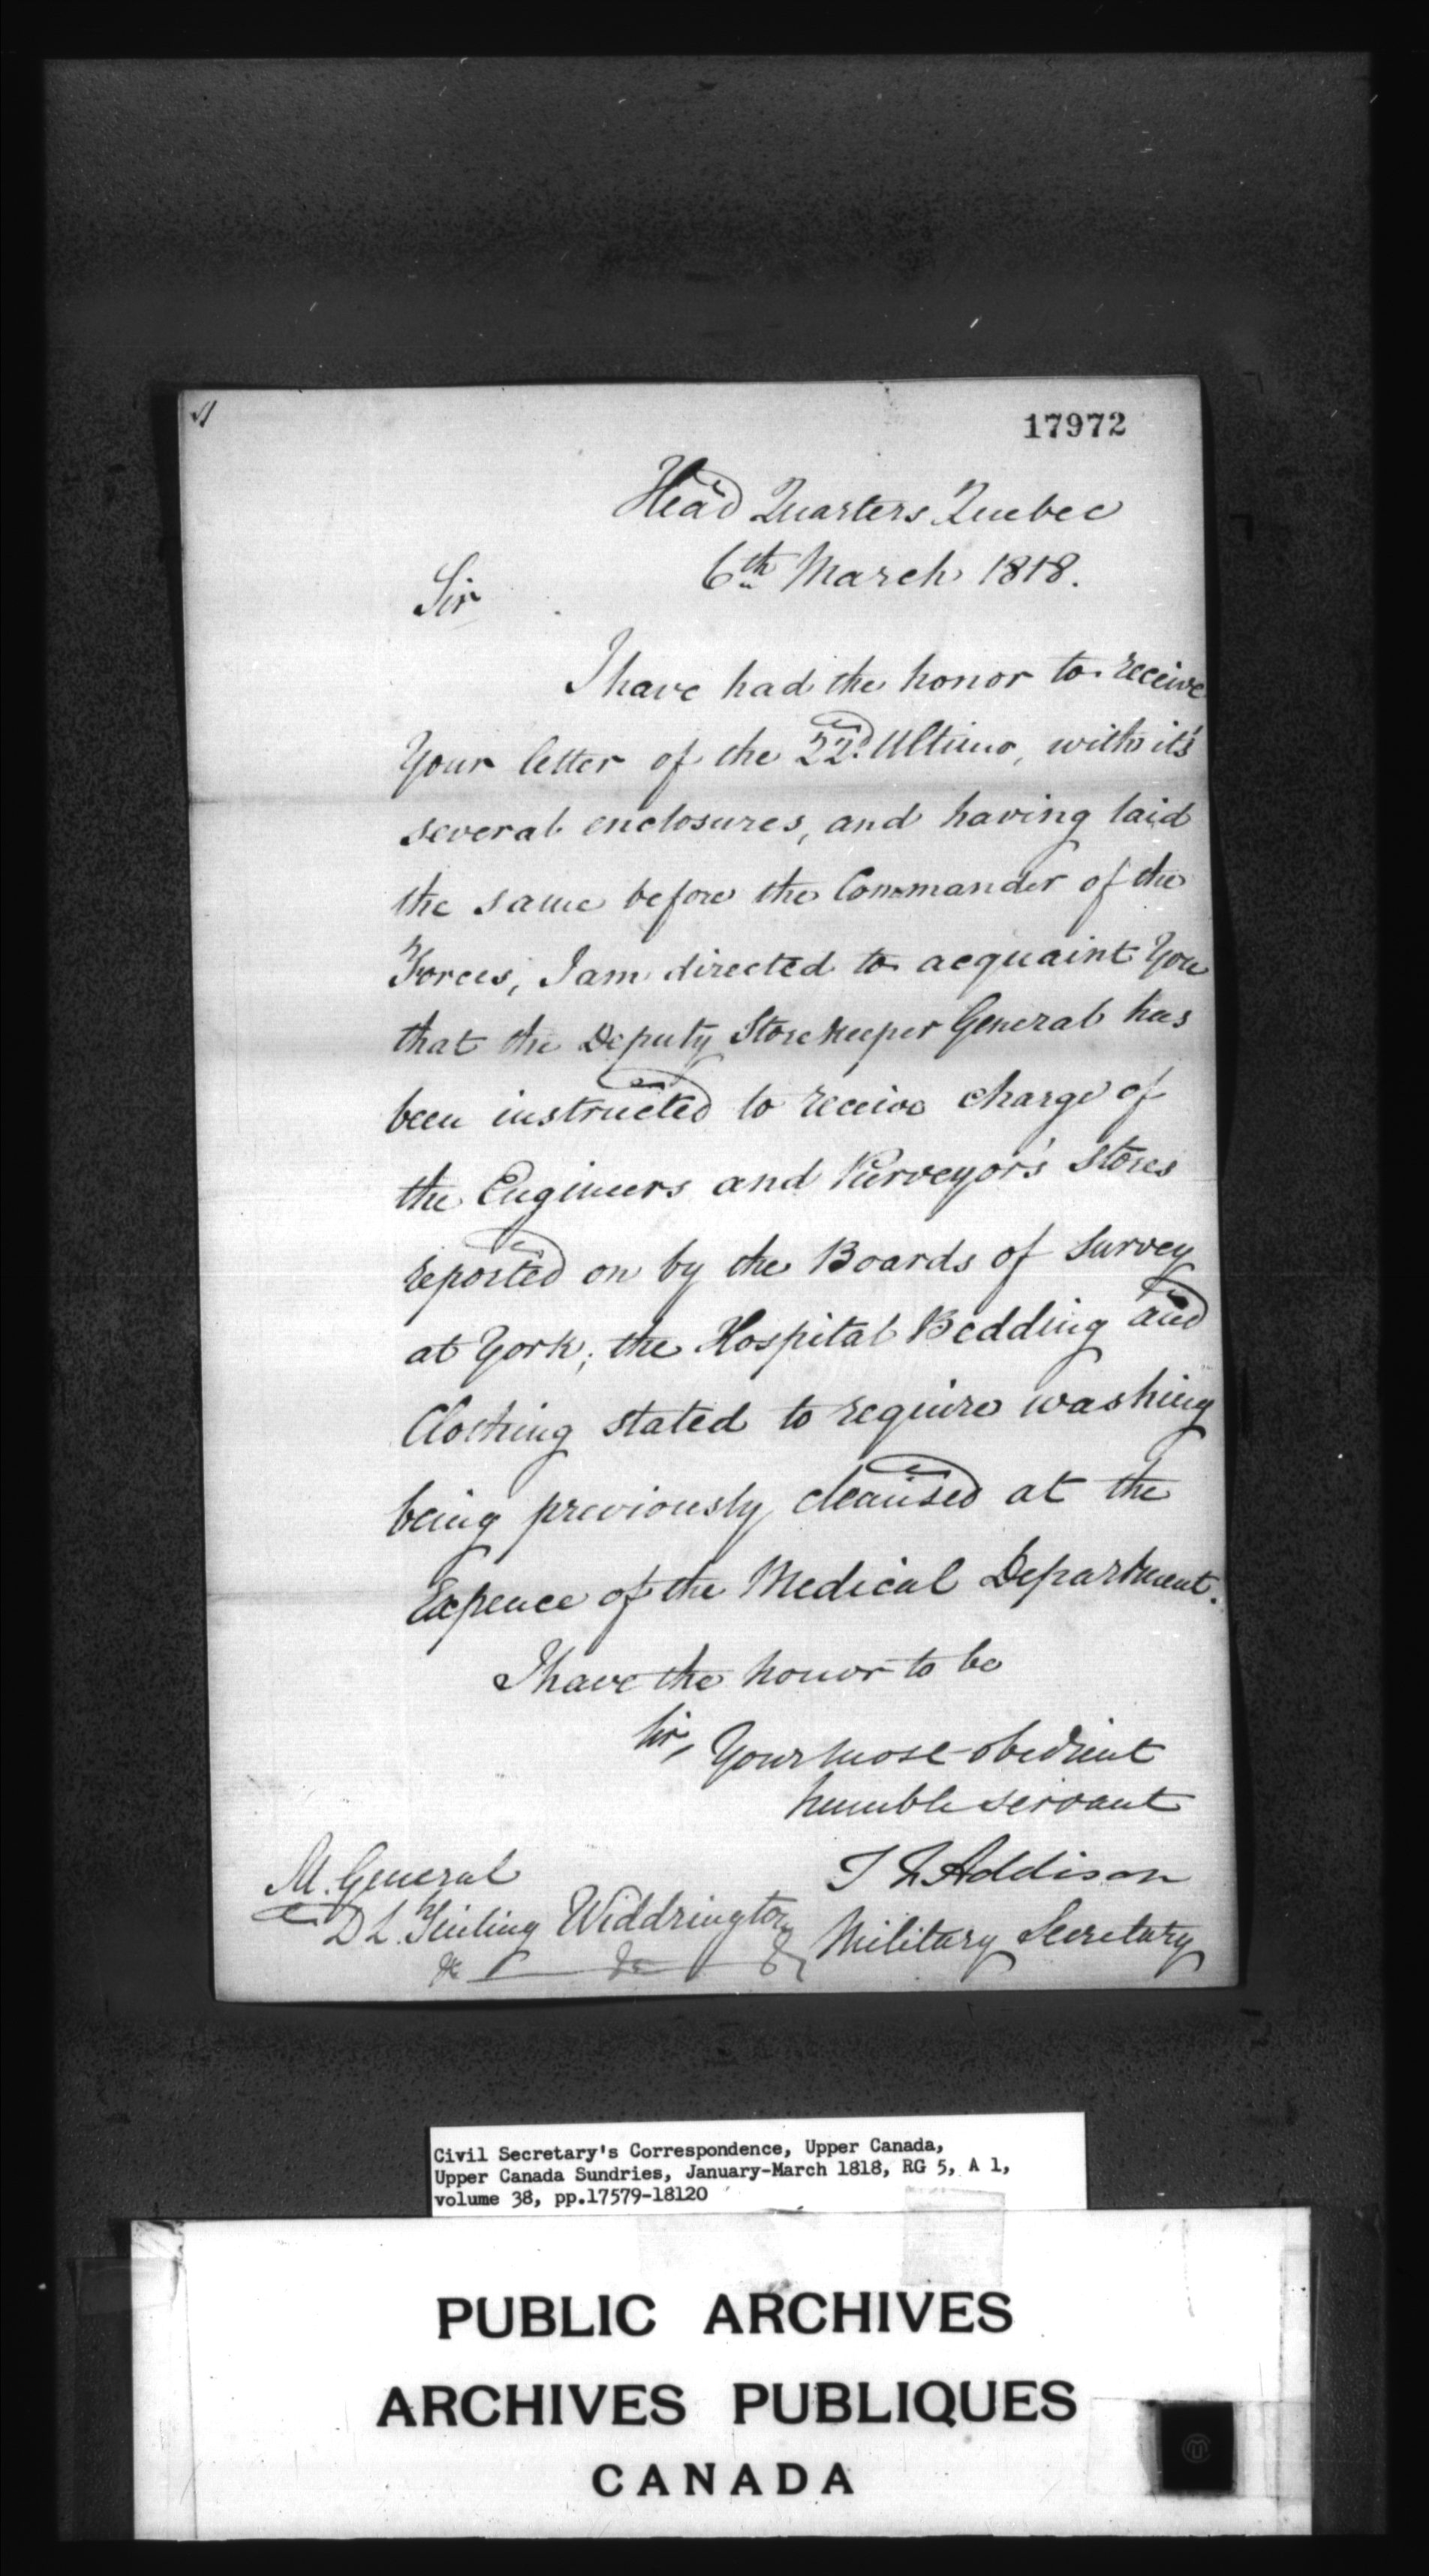 17972
Head Quarters Quebec
6th March 1818.
Sir
I have had the honor to receive
Your letter of the 22d. Ultimo, with it's
several enclosures, and having laid
the same before the Commander of the
Forces, I am directed to acquaint You
that the Deputy Storekeeper General has
been instructed to receive charge of
the Engineers and Purveyor's Stores
reported on by the Boards of Survey
at York; the Hospital Bedding and
Clothing stated to require washing
being previously cleansed at the
Expence of the Medical Department.
I have the honor to be
Sir, Your most obedient
humble servant
T Addison
Military Secretary
M. General
D L. Tinling Widdrington
&c &c &c
Civil Secretary's Correspondence, Upper Canada,
Upper Canada Sundries, January-March 1818, RG 5, A 1,
volume 38, pp.17579-18120
PUBLIC ARCHIVES
ARCHIVES PUBLIQUES
CANADA